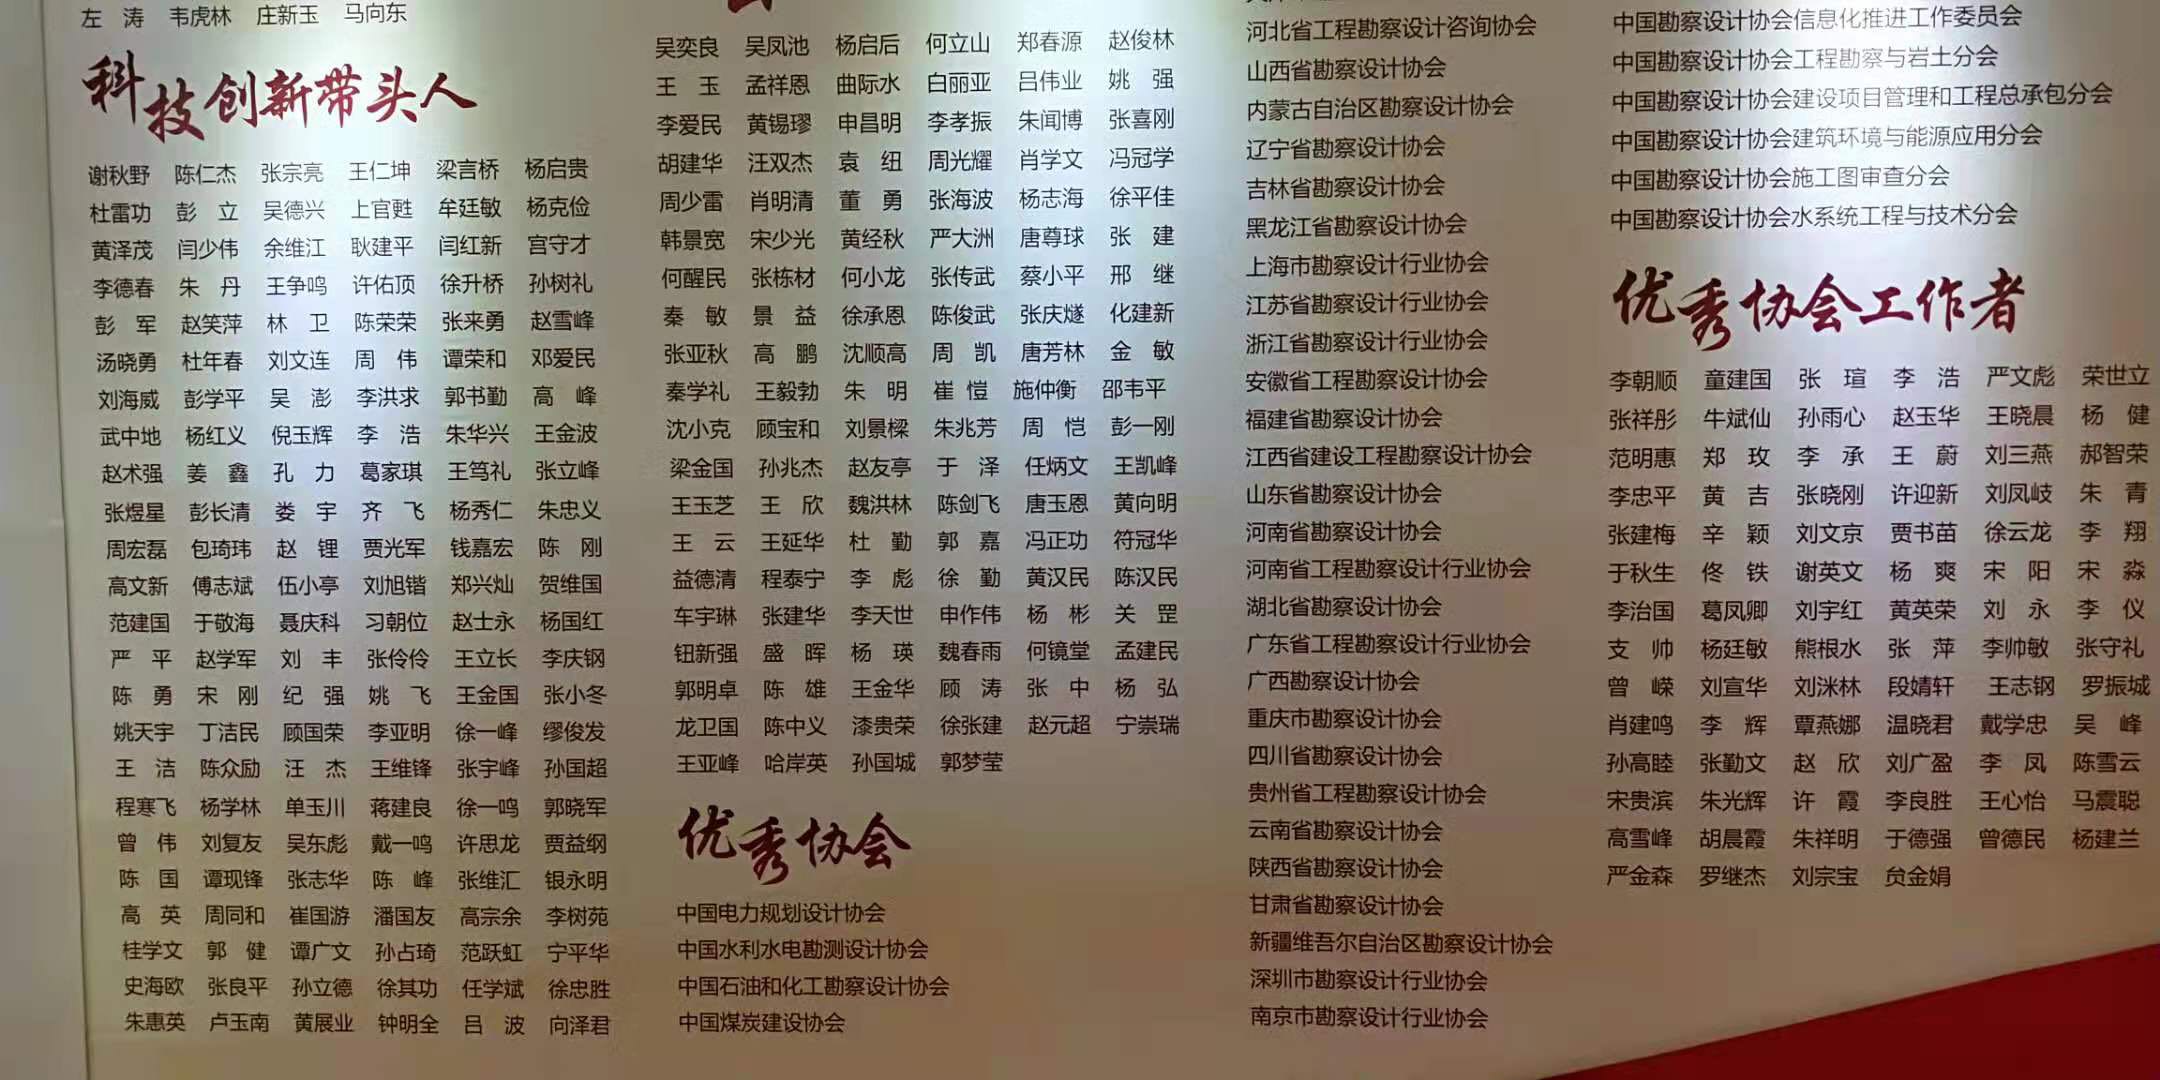 左 涛 韦虎林 庄新玉 马向东
科技创新带头人
谢秋野 陈仁杰 张宗亮 王仁坤 梁言桥 杨启贵
杜雷功 彭 立 吴德兴 上官甦 牟廷敏 杨克俭
黄泽茂 闫少伟 余维江 耿建平 闫红新 宫守才
李德春 朱 丹 王争鸣 许佑顶 徐升桥 孙树礼
彭 军 赵笑萍 林 卫 陈荣荣 张来勇 赵雪峰
汤晓勇 杜年春 刘文连 周 伟 谭荣和 邓爱民
刘海威 彭学平 吴 澎 李洪求 郭书勤 高 峰
武中地 杨红义 倪玉辉 李 浩 朱华兴 王金波
赵术强 姜 鑫 孔 力 葛家琪 王笃礼 张立峰
张煜星 彭长清 娄 宇 齐 飞 杨秀仁 朱忠义
周宏磊 包琦玮 赵 锂 贾光军 钱嘉宏 陈 刚
高文新 傅志斌 伍小亭 刘旭锴 郑兴灿 贺维国
范建国 于敬海 聂庆科 习朝位 赵士永 杨国红
严 平 赵学军 刘 丰 张伶伶 王立长 李庆钢
陈 勇 宋 刚 纪 强 姚 飞 王金国 张小冬
姚天宇 丁洁民 顾国荣 李亚明 徐一峰 缪俊发
王 洁 陈众励 汪 杰 王维锋 张宇峰 孙国超
程寒飞 杨学林 单玉川 蒋建良 徐一鸣 郭晓军
曾 伟 刘复友 吴东彪 戴一鸣 许思龙 贾益纲
陈 国 谭现锋 张志华 陈 峰 张维汇 银永明
高 英 周同和 崔国游 潘国友 高宗余 李树苑
桂学文 郭 健 谭广文 孙占琦 范跃虹 宁平华
史海欧 张良平 孙立德 徐其功 任学斌 徐忠胜
朱惠英 卢玉南 黄展业 钟明全 吕 波 向泽君
吴奕良 吴凤池 杨启后 何立山 郑春源 赵俊林
王 玉 孟祥恩 曲际水 白丽亚 吕伟业 姚 强
李爱民 黄锡璆 申昌明 李孝振 朱闻博 张喜刚
胡建华 汪双杰 袁 纽 周光耀 肖学文 冯冠学
周少雷 肖明清 董 勇 张海波 杨志海 徐平佳
韩景宽 宋少光 黄经秋 严大洲 唐尊球 张 建
何醒民 张栋材 何小龙 张传武 蔡小平 邢 继
秦 敏 景 益 徐承恩 陈俊武 张庆燧 化建新
张亚秋 高 鹏 沈顺高 周 凯 唐芳林 金 敏
秦学礼 王毅勃 朱 明 崔 愷 施仲衡 邵韦平
沈小克 顾宝和 刘景樑 朱兆芳 周 恺 彭一刚
梁金国 孙兆杰 赵友亭 于 泽 任炳文 王凯峰
王玉芝 王 欣 魏洪林 陈剑飞 唐玉恩 黄向明
王 云 王延华 杜 勤 郭 嘉 冯正功 符冠华
益德清 程泰宁 李 彪 徐 勤 黄汉民 陈汉民
车宇琳 张建华 李天世 申作伟 杨 彬 关 罡
钮新强 盛 晖 杨 瑛 魏春雨 何镜堂 孟建民
郭明卓 陈 雄 王金华 顾 涛 张 中 杨 弘
龙卫国 陈中义 漆贵荣 徐张建 赵元超 宁崇瑞
王亚峰 哈岸英 孙国城 郭梦莹
优秀协会
中国电力规划设计协会
中国水利水电勘测设计协会
中国石油和化工勘察设计协会
中国煤炭建设协会
河北省工程勘察设计咨询协会
山西省勘察设计协会
内蒙古自治区勘察设计协会
辽宁省勘察设计协会
吉林省勘察设计协会
黑龙江省勘察设计协会
上海市勘察设计行业协会
江苏省勘察设计行业协会
浙江省勘察设计行业协会
安徽省工程勘察设计协会
福建省勘察设计协会
江西省建设工程勘察设计协会
山东省勘察设计协会
河南省勘察设计协会
河南省工程勘察设计行业协会
湖北省勘察设计协会
广东省工程勘察设计行业协会
广西勘察设计协会
重庆市勘察设计协会
四川省勘察设计协会
贵州省工程勘察设计协会
云南省勘察设计协会
陕西省勘察设计协会
甘肃省勘察设计协会
新疆维吾尔自治区勘察设计协会
深圳市勘察设计行业协会
南京市勘察设计行业协会
中国勘察设计协会信息化推进工作委员会
中国勘察设计协会工程勘察与岩土分会
中国勘察设计协会建设项目管理和工程总承包分会
中国勘察设计协会建筑环境与能源应用分会
中国勘察设计协会施工图审查分会
中国勘察设计协会水系统工程与技术分会
优秀协会工作者
李朝顺 童建国 张 瑄 李 浩 严文彪 荣世立
张祥彤 牛斌仙 孙雨心 赵玉华 王晓晨 杨 健
范明惠 郑 玫 李 承 王 蔚 刘三燕 郝智荣
李忠平 黄 吉 张晓刚 许迎新 刘凤岐 朱 青
张建梅 辛 颖 刘文京 贾书苗 徐云龙 李 翔
于秋生 佟 铁 谢英文 杨 爽 宋 阳 宋 淼
李治国 葛凤卿 刘宇红 黄英荣 刘 永 李 仪
支 帅 杨廷敏 熊根水 张 萍 李帅敏 张守礼
曾 嵘 刘宣华 刘洣林 段婧轩 王志钢 罗振城
肖建鸣 李 辉 覃燕娜 温晓君 戴学忠 吴 峰
孙高睦 张勤文 赵 欣 刘广盈 李 凤 陈雪云
宋贵滨 朱光辉 许 霞 李良胜 王心怡 马震聪
高雪峰 胡晨霞 朱祥明 于德强 曾德民 杨建兰
严金森 罗继杰 刘宗宝 贠金娟